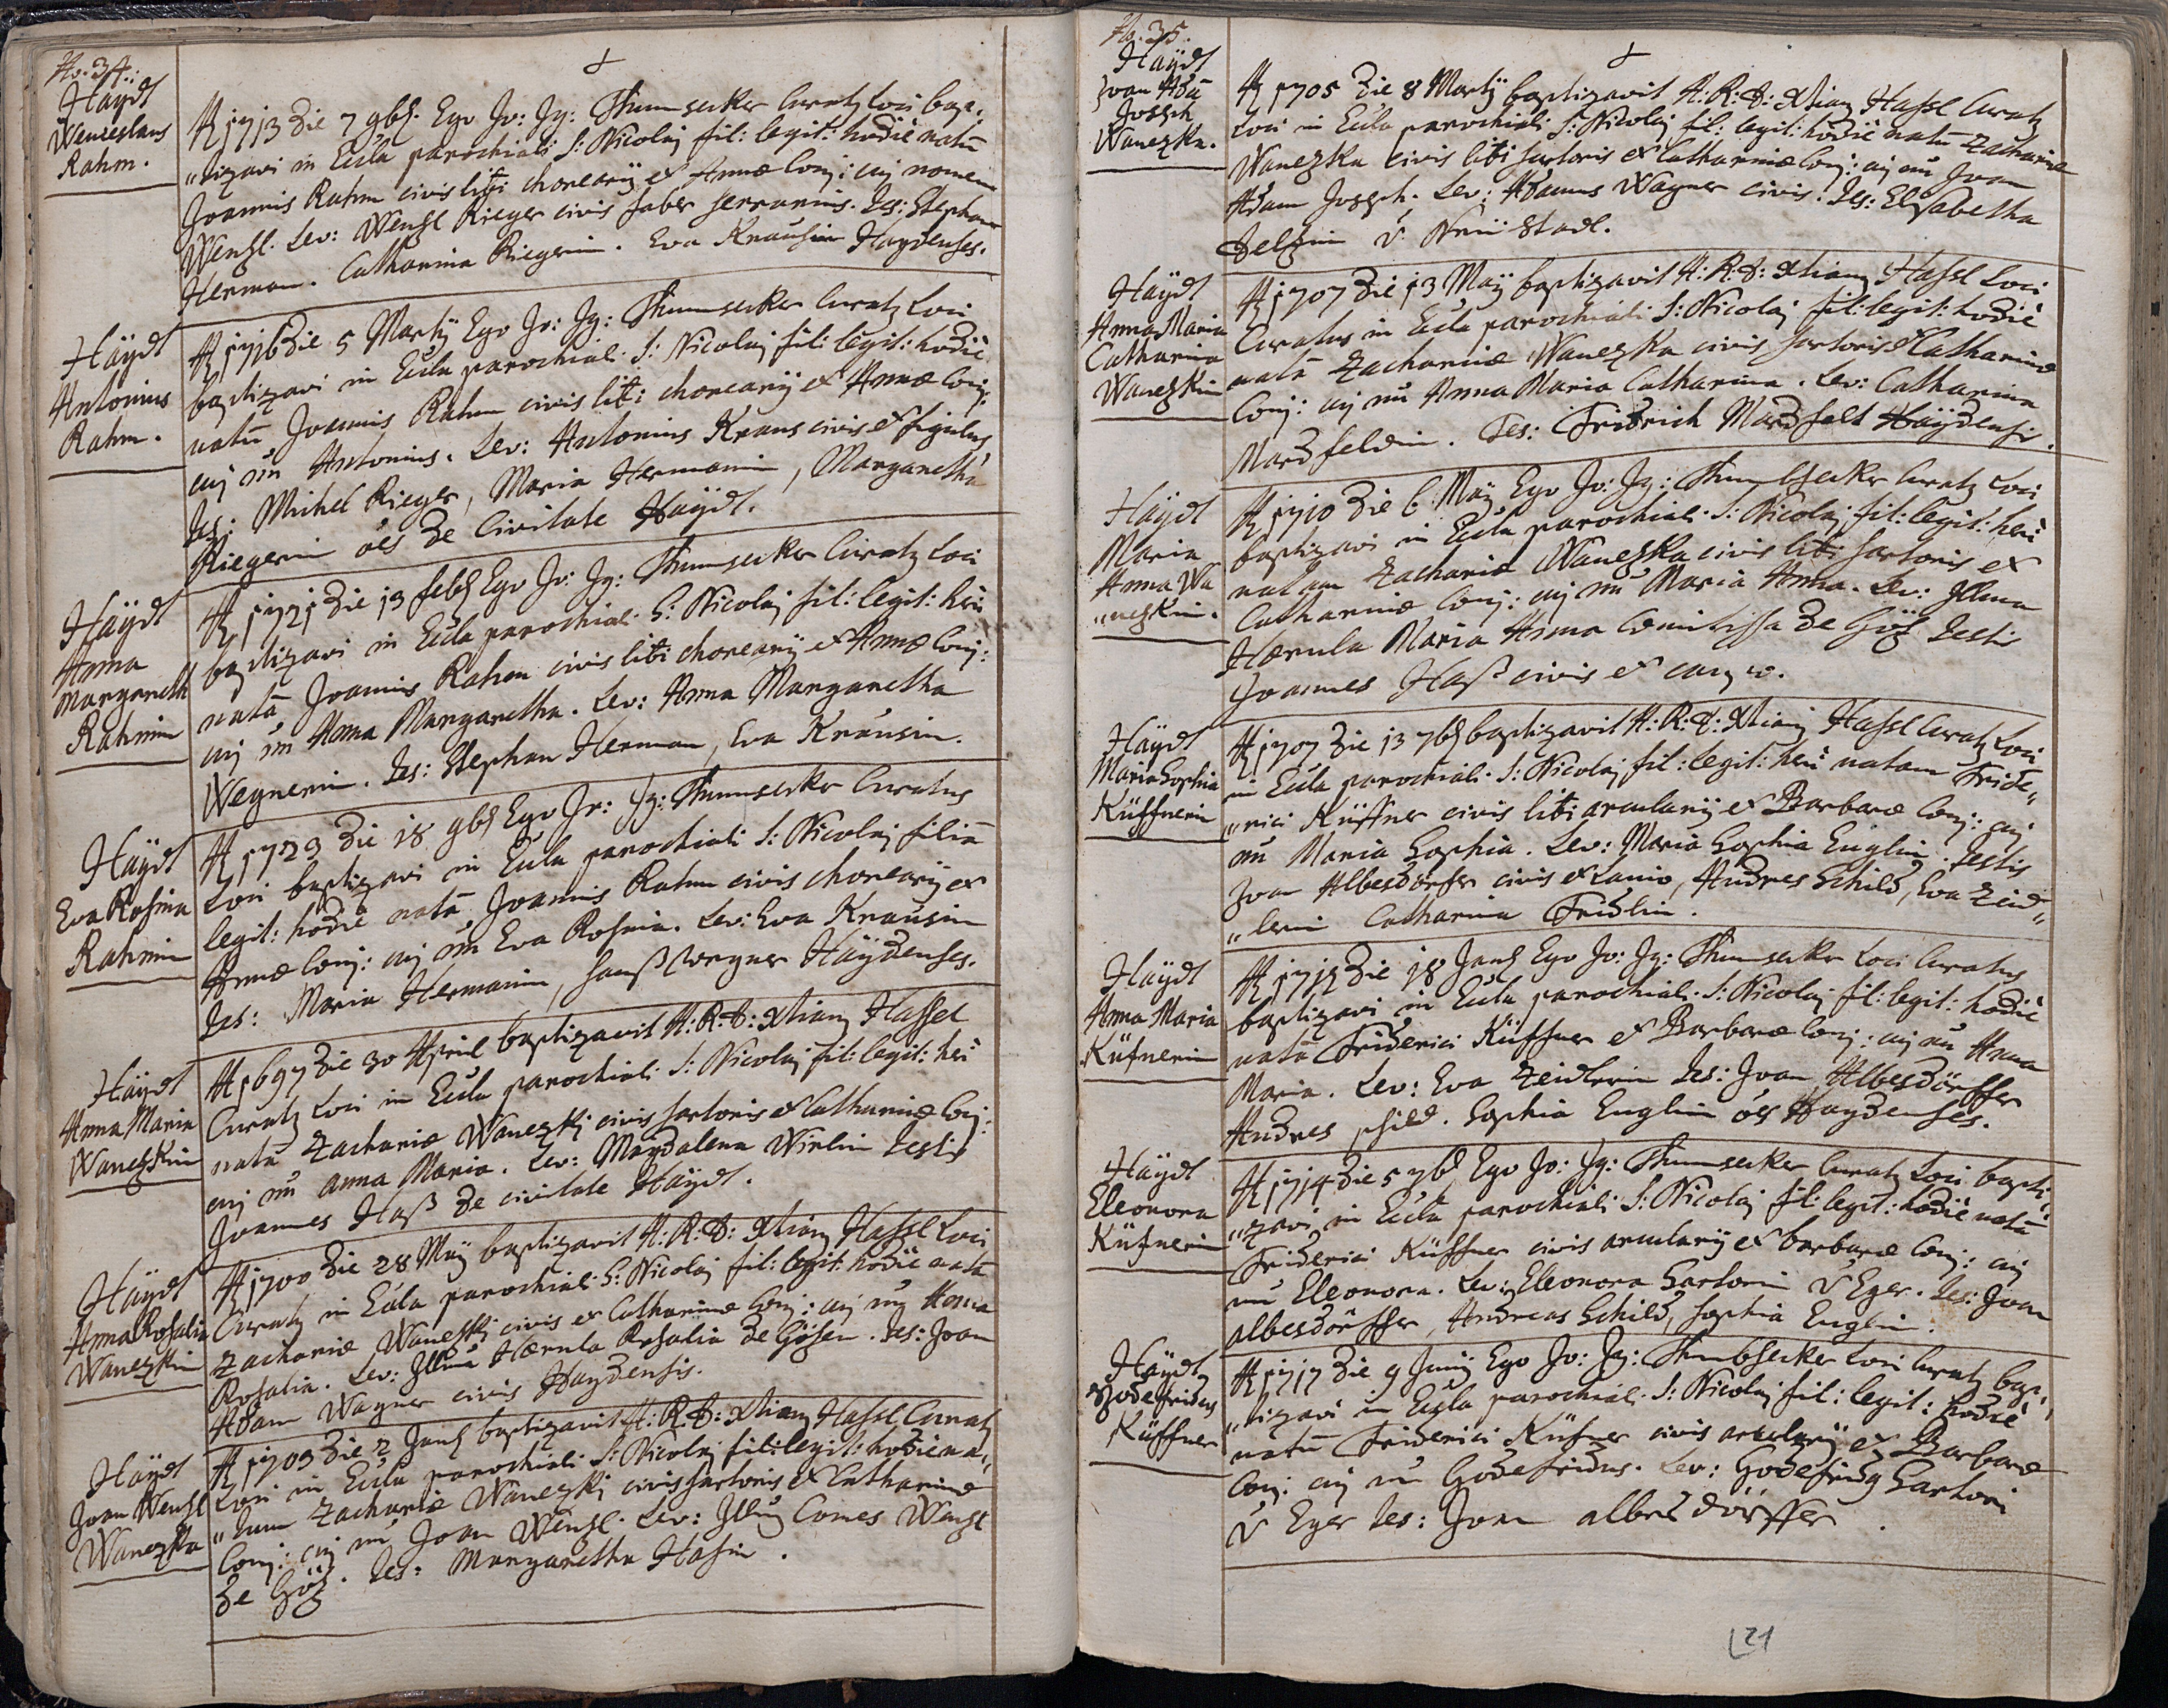 No. 34.:
Haÿdt
Wenceslaus
Rahm.
A͠o 1713 die 7 9bẽ. Ego Jo: Jg: Thumsecker Curatꝰ loci bap„
„tizavi in Eccla parochiali S: Nicolaj fil: legit: hodiè natũ
Joannis Rahm civis liti chorearij et Annæ Conj: cuj nomen
Wenzl. Lev: Wenzl Rieger civis faber serrarius. Tes: Stephan
Herman. Catharina Riegerin. Eva Krausin Haydenses.
Haÿdt
Antonius
Rahm.
A͠o 1716 die 5 Martÿ Ego Jo: Jg: Thumsecker Curatꝰ Loci
baptizavi in Eccla parochial. S: Nicolaj fil: legit: hodiè
natũ Joannis Rahm civis liti chorearÿ et Annæ Conj:
cuj nñ Antonius. Lev: Antonius Kraus civis et figulus
Tes: Michel Rieger, Maria Hermanin, Margaretha
Riegerin oẽs de Civitate Haÿdt.
Haÿdt
Anna
Margareth
Rahmin
A͠o 1721 die 13 febꝭ Ego Jo: Jg: Thumsecker Curatꝰ Loci
baptizavi in Eccla parochial. S: Nicolaj fil: legit: heri
natã Joannis Rahm civis liti chorearÿ et Annæ Conj:
cuj nñ Anna Margaretha. Lev: Anna Margaretha
Wegnerin. Tes: Stephan Herman, Eva Krausin.
Haÿdt
Eva Rosina
Rahmin
A͠o 1723 die 18 9bꝭ Ego Jo: Jg: Thumsecker Curatus
Loci baptizavi in Eccla parochiali S: Nicolaj filiã
legit: hodiè natã Joannis Rahm civis chorearÿ et
Annæ Conj: cuj nñ Eva Rosina. Lev: Eva Krausin
Tes: Maria Hermanin, hanß Wegner Haÿdenses.
Haÿdt
Anna Maria
Wanezkin
A͠o 1697 die 30 April baptizavit A: R: D: Xtianꝰ Hassel
Curatꝰ Loci in Eccla parochiali S: Nicolaj fil: legit: heri
natã Zachariæ Wanezkj civis sartoris et Catharinæ Conj:
cuj nũ anna Maria. Lev: Magdalena Wirlin Testis
Joannes Haß de civitate Haÿdt.
Haÿdt
Anna Rosalia
Wanezkin
A͠o 1700 die 28 Maÿ baptizavit A: R: D: Xtianꝰ Hassl Loci
Curatꝰ in Eccla parochial: S: Nicolaj fil: legit: hodiè natã
Zachariæ Wanezkj civis et Catharinæ Conj: cuj nñ Anna
Rosalia. Lev: Illma Hærula Rosalia de Gösen. Tes: Joan
Adam Wagner civis Haydensis.
Haÿdt
Joan Wenzl
Wanezka
A͠o 1703 die 2 Janꝭ baptizavit A: R: D: Xtianꝰ Hassl Curatꝰ
Loci in Eccla parochiali S: Nicolaj fil: legit: hodie na„
„tum Zachariæ Wanezkj civis sartoris et Catharinæ
Conj: cuj nñ Joan Wenzl. Lev: Illmꝰ Comes Wenzl
de Göz. Tes: Margaretha Hasin.
No. 35.
Haÿdt
Joan Adã
Joseph
Wanezka.
A͠o 1705 die 8 Martÿ baptizavit A: R: D: Xtianꝰ Hassl Curatꝰ
Loci in Eccla parochiali S: Nicolaj fil: legit: hodiè natũ Zachariæ
Wanezka civis liti sartoris et Catharinæ Conj: cuj nũ Joan
Adam Joseph. Lev: Adamus Wagner civis. Tes: Elisabetha
Delzin v. Neü Stadl.
Haÿdt
Anna Maria
Catharina
Wanezkin
A͠o 1707 die 13 Maÿ baptizavit A: R: D: Xtianꝰ Hassl Loci
Curatus in Eccla parochiali S: Nicolaj fil: legit: hodiè
natã Zachariæ Wanezka civis sartoris et Catharinæ
Conj: cuj nũ Anna Maria Catharina. Lev: Catharina
Mardfeldin. Tes: Fridrich Mardfelt Haÿdensis.
Haÿdt
Maria
Anna Wa
„nezkin.
A͠o 1710 die 6 Maÿ Ego Jo: Jg: Thumbsecker Curatꝰ Loci
baptizavi in Eccla parochiali S: Nicolaj fil: legit: heri
natam Zachariæ Wanezka civis liti sartoris et
Catharinæ Conj: cuj nũ Maria Anna. Lev: Illma
Hærula Maria Anna Comitissa de Göz Testis
Joannes Haß civis et
Haÿdt
Maria Sophia
Küffnerin
A͠o 1707 die 13 7bꝭ baptizavit A: R: D: Xtianꝰ Hassl Curatꝰ Loci
in Eccla parochiali. S: Nicolaj fil: legit: heri natam Fride„
„rici Küffner civis liti arculariÿ et Barbaræ Conj: cuj
nũ Maria Sophia. Lev: Maria Sophia Euglin. Testis
Joan Albesdörfer civis et Lanio, Andres Schild, Eva Zeid„
„lerin Catharina Fridlin.
Haÿdt
Anna Maria
Küfnerin
A͠o 1712 die 18 Janꝭ Ego Jo: Jg: Thumsecker Loci Curatus
baptizavi in Eccla parochiali. S: Nicolaj fil: legit: hodiè
natã Friderici Küffner et Barbaræ Conj: cuj nũ Anna
Maria. Lev: Eva Zeidlerin Tes: Joan Albesdörffer
Andres schild. Sophia Euglin oẽs Haydenses.
Haÿdt
Eleonora
Küfnerin
A͠o 1714 die 5 7bꝭ Ego Jo: Jg: Thumsecker Curatꝰ Loci bapti„
„zavi in Eccla parochiali S: Nicolaj fil: legit: hodiè natã
Friderici Küffner civis arculariÿ et barbaræ Conj: cuj
nũ Eleonora. Lev: Eleonora Sartorin v Eger. Tes: Joan
albesdörffer, Andreas Schild, Sophia Euglin.
Haÿdt
Godefridus
Küffner
A͠o 1717 die 9 Junÿ Ego Jo: Jg: Thumbsecker Loci Curatꝰ bap„
„tizavi in Eccla parochial. S: Nicolaj fil: legit: hodiè
natũ Friderici Küfner civis arculariÿ et Barbaræ
Conj: cuj nũ Godefridus. Lev: Godefridꝰ Sartori
v Eger Tes: Joan albesdörffer.
21